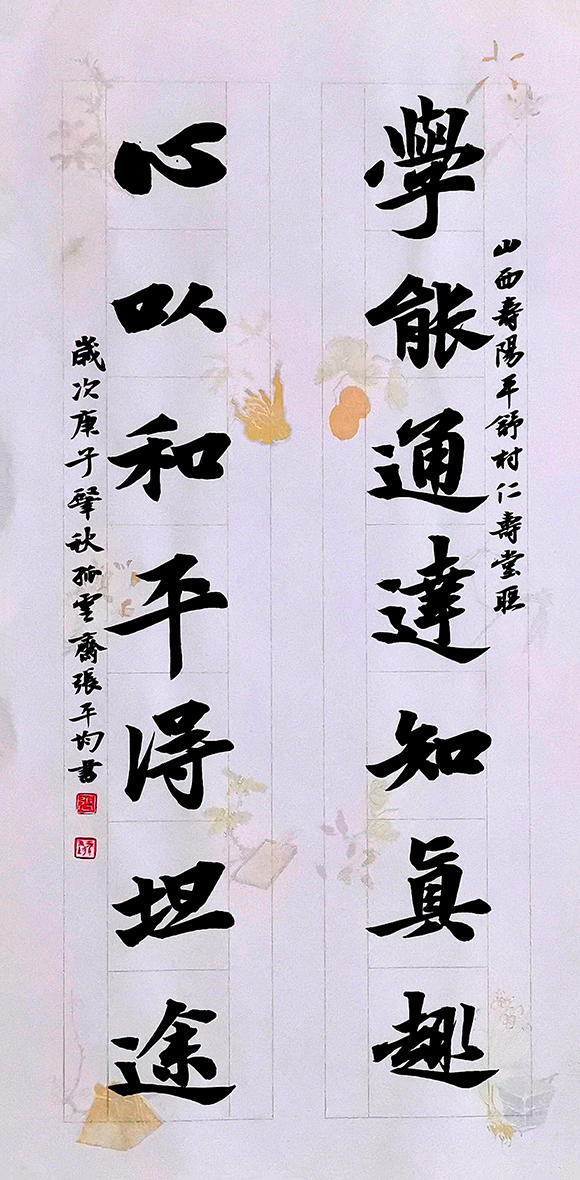 山西壽陽平舒村仁壽堂联
學能通達知真趣
心以和平得坦途
歲次庚子肇秋孤雲齋張平均書